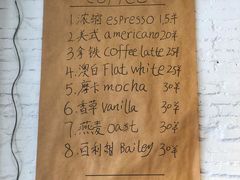 COFFEE
1.浓缩 espresso 15元
2.美式 americano 20半
3.拿铁 coffee latte 25半
4.澳白 Flat white 25半
5.摩卡 mocha 30半
6.香草 vanilla 30半
7.燕麦 oast 30半
8.百利甜 Bailey 30半